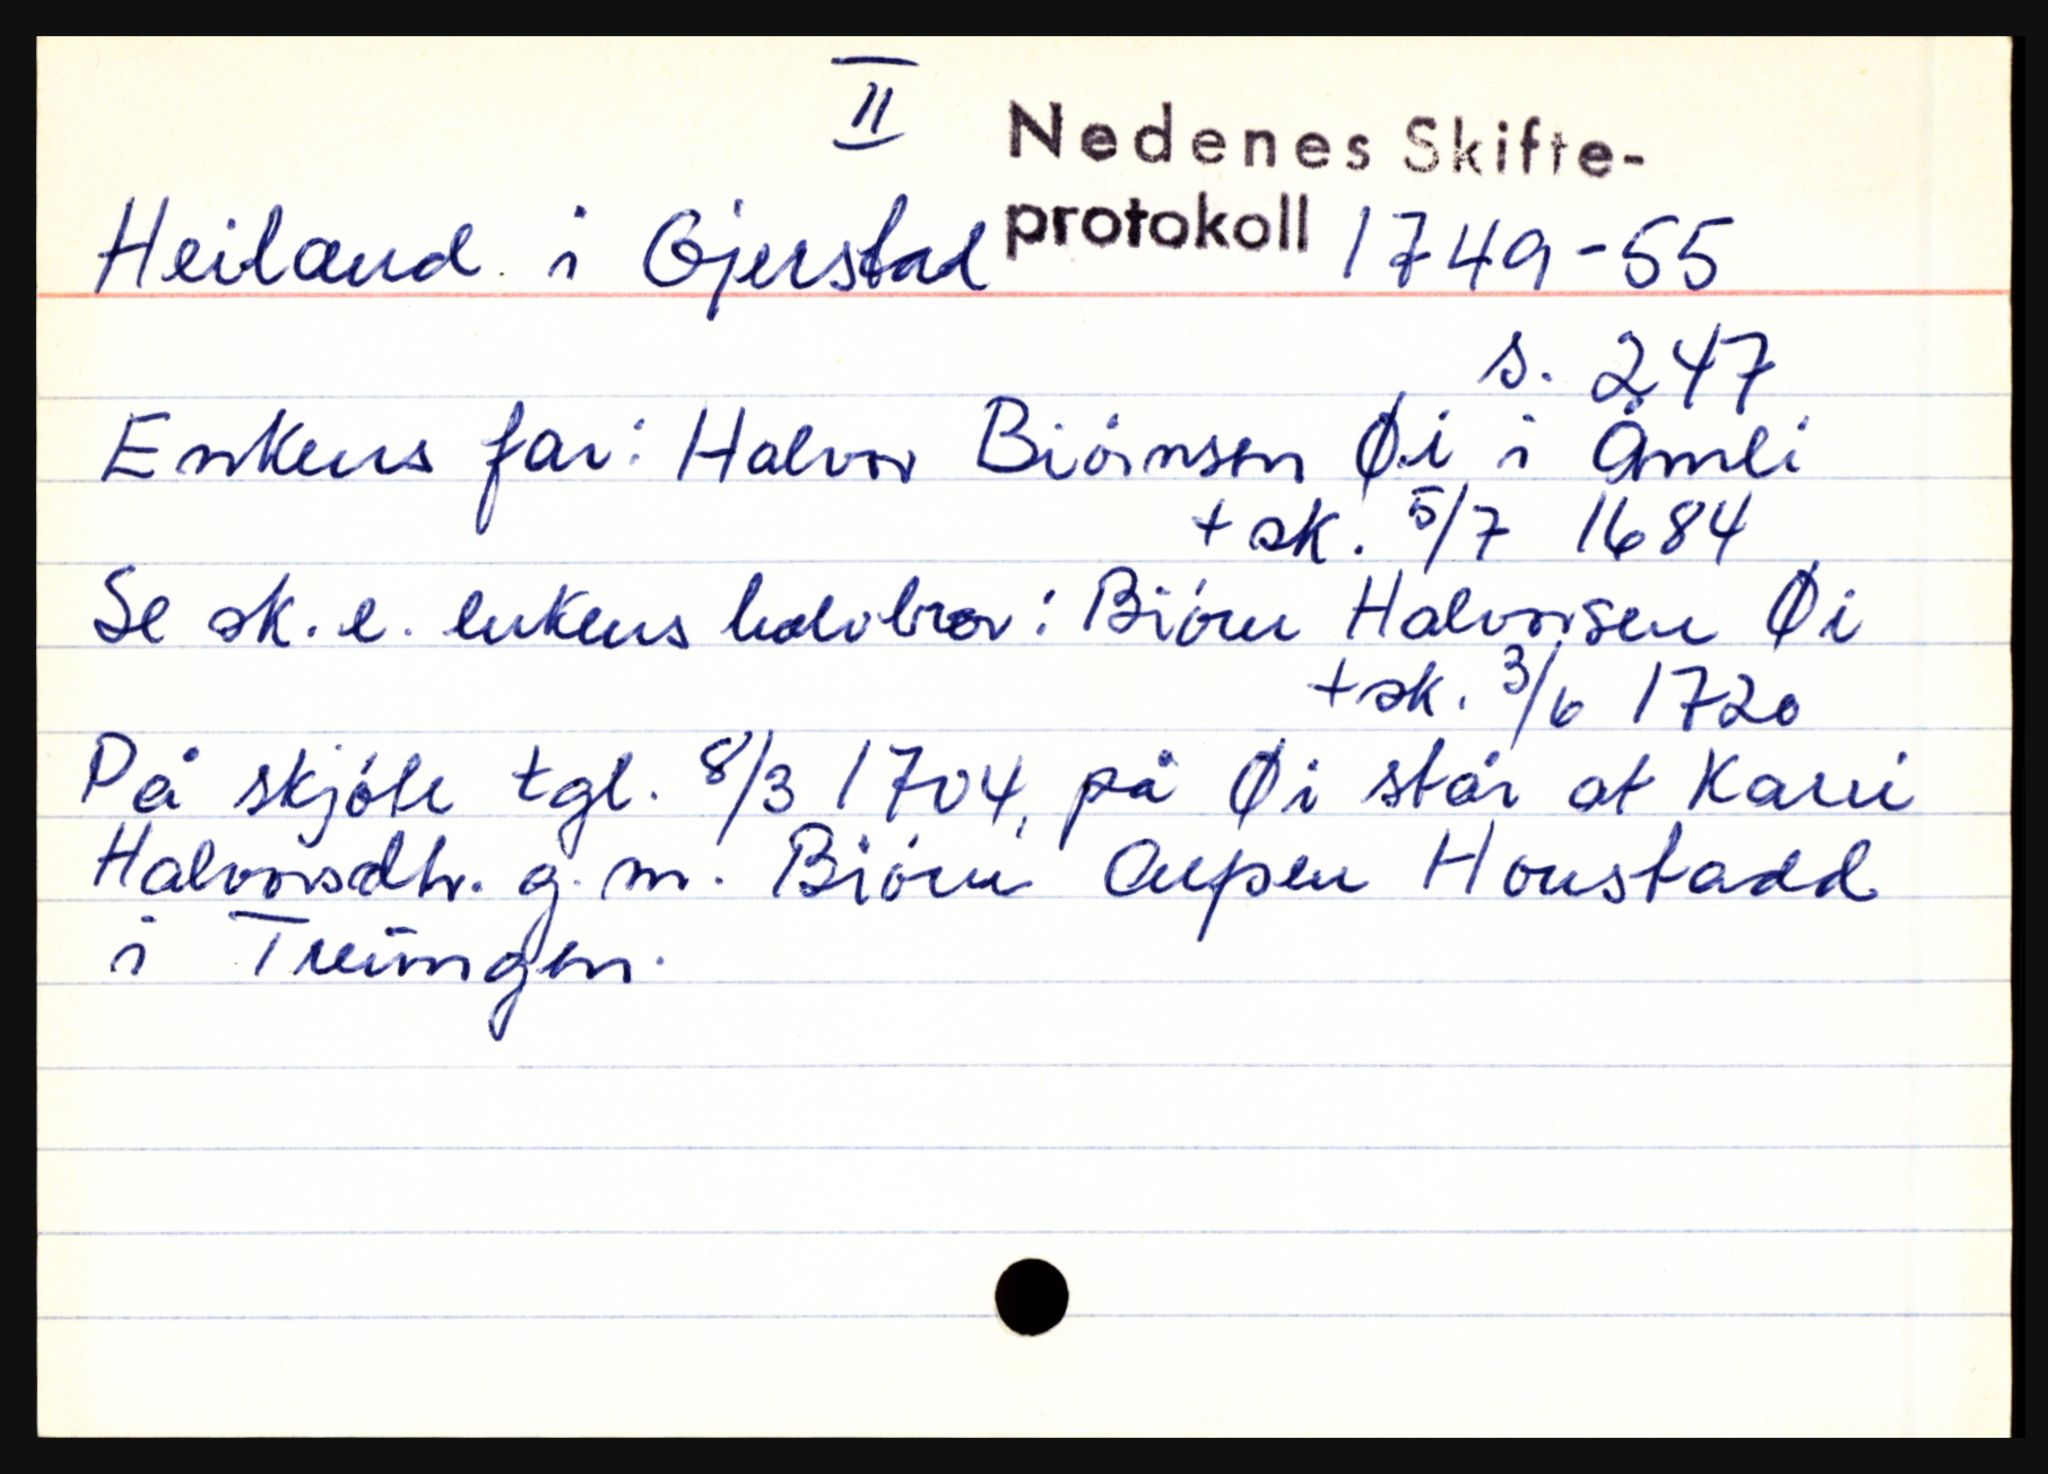 II
Nedenes Skifte-
protokoll 1749-55
Heiland i Gjerstad
s. 247
Enkens far: Halvor Biørnsen Øi i Åmli
+ sk. 5/7 1684
Se sk. e. enkens halvbror: Biørn Halvorsen Øi
+ sk. 3/6 1720
På skjøte tgl. 8/3 1704, på Øi står at Karri
Halvorsdtr. g. m. Biørn Houstadd
i Treungen.